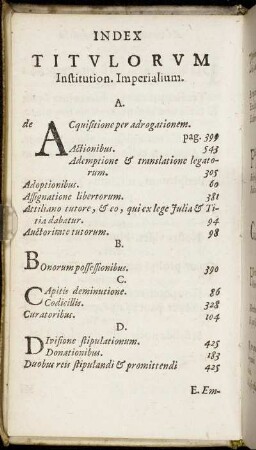 INDEX
TITVLORVM
Institution. Imperialium.
A.
de ACquisitione per adrogationem.
pag. 399
Actionibus. 543
Ademptione & translatione legato-
rum. 305
Adoptionibus. 60
Assignatione libertorum. 381
Attiliano tutore, & eo, qui ex lege Julia & Ti-
tia dabatur. 94
Auctoritate tutorum. 98
B.
BOnorum possessionibus. 390
C.
CApitis deminutione. 86
Codicillis. 328
Curatoribus. 104
D.
DIvisione stipulationum. 425
Donationibus. 183
Duobus reis stipulandi & promittendi 425
E. Em-